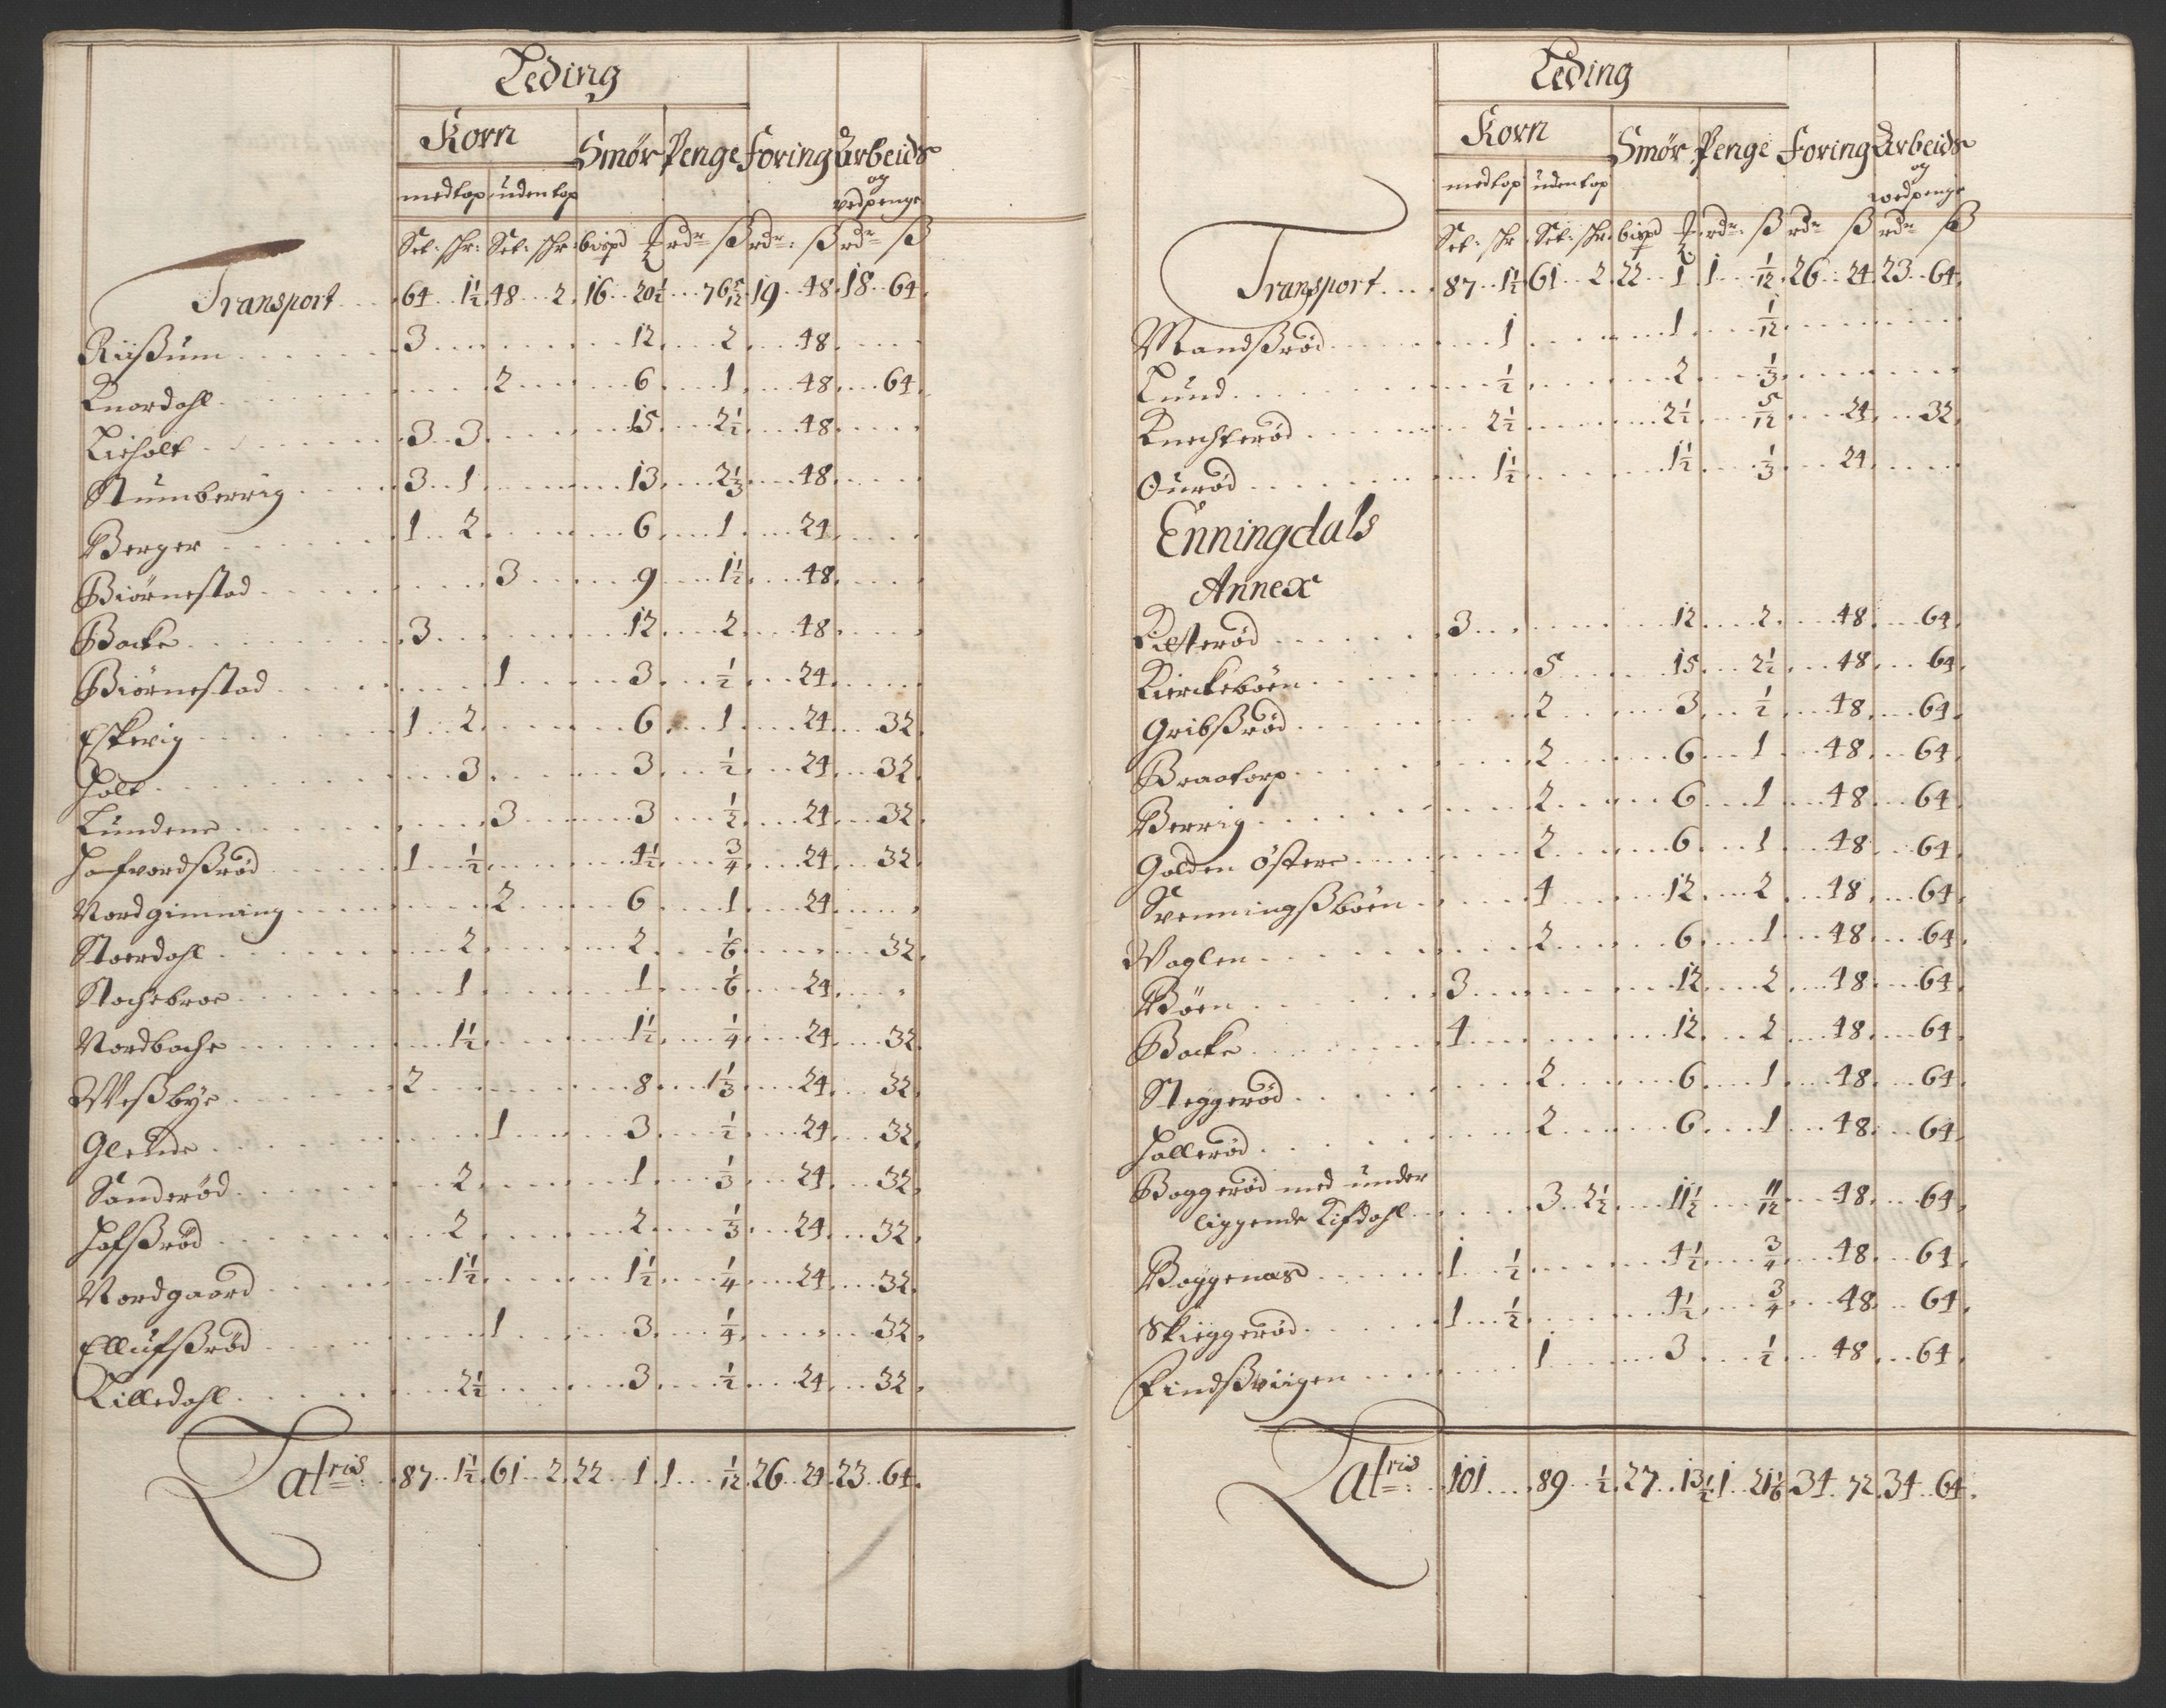 Leding
Korn Smør Penge Foring Arbeids
og
med top uden top vedpenge
Set: skr: Set: skr: bispd ℔ rdr ß rdr: ß rdr ß
Transport 64 1½ 48 2 16 20½ 76 5/12 19 48 18 64
Riißum 3 12 2 48
Knardahl 2 6 1 48 64
Lieholt 3 3 15 2½ 48
Stumberrig 3 1 13 2⅓ 48
Berger 1 2 6 1 24
Biørnestad 3 9 1½ 48
Backe 3 12 2 48
Biørnestad 1 3 ½ 24
Eskevig 1 2 6 1 24 32
Holt 3 3 ½ 24 32
Lundene 3 3 ½ 24 32
Hafvordßrød 1 ½ 4½ ¾ 24 32
Nordgimming 2 6 1 24
Stoerdahl 2 2 1/6 32
Stochebroe 1 1 1/6 24
Nordbache 1½ 1½ ¼ 24 32
Weßbye 2 8 1⅓ 24 32
Glende 1 3 ½ 24 32
Sanderød 2 1 ⅓ 24 32
Hofßrød 2 2 ⅓ 24 32
Nordgaard 1½ 1½ ¼ 24 32
Ellufßrød 1 3 ¼ 32
Killedahl 2½ 3 ½ 24 32
Latris: 87 1½ 61 2 22 1 1 1/12 26 24 23 64
Leding
Korn Smør Penge Foring Arbeids
og
med top uden top wedpenge
Set: skr Set: skr: bispd ℔ rdr: ß rdr ß rdr ß
Transport 87 1½ 61 2 22 1 1 1/12 26 24 23 64
Mandßrød 1 1 1/12
Lund ½ 2 ⅓
Knechterød 2½ 2½ 5/12 24 32
Ourød 1½ 1½ ⅓ 24
Enningdals
Annex
Kilsterød 3 12 2 48 64
Kierckebøen 5 15 2½ 48 64
Gribßrød 2 3 ½ 48 64
Braatorp 2 6 1 48 64
Berrig 2 6 1 48 64
Golden østere 2 6 1 48 64
Svenningßbøen 4 12 2 48 64
Waglen 2 6 1 48 64
Bøen 3 12 2 48 64
Backe 4 12 2 48 64
Steggerød 2 6 1 48 64
Hallerød 2 6 1 48 64
Boggerød med under
liggende Kifdahl 3 2½ 11½ 11/12 48 64
Boggenæs 1 ½ 4½ ¾ 48 64
Skieggerød 1 ½ 4½ ¾ 48 64
Findßviigen 1 3 ½ 48 64
Latris: 101 89 ½ 27 13½ 1 21 1/6 34 72 34 64